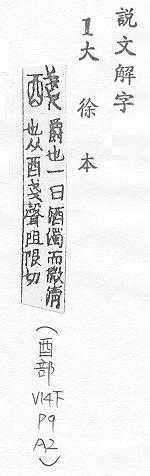 説文解字
1大徐本
醆 爵也一曰酒濁而微清
也从酉戔聲阻限切
(酉部
V14下
P9
A2)